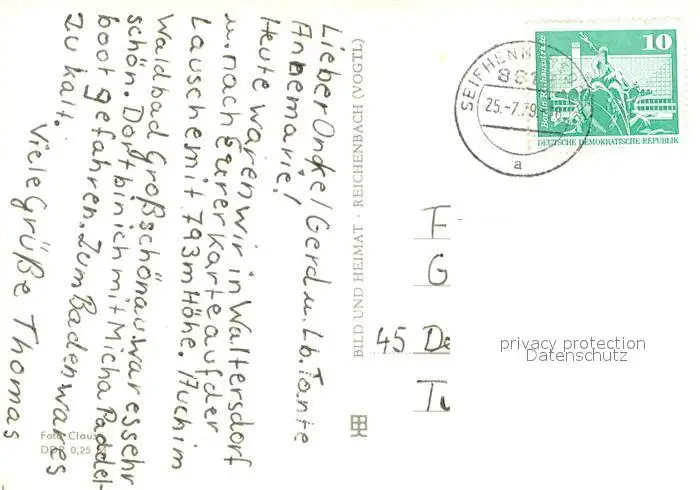 Lieber Onkel Gerd u. lb. Tante
Annemarie!
Heute waren wir in Waltersdorf
u. nach eurer Karte auf der
Lausche mit 793m Höhe. Auch im
Waldbad Großschönau war es sehr
schön. Dort bin ich mit Micha Paddel-
boot gefahren. Zum Baden war es
zu kalt.
Viele Grüße Thomas
Foto: Claus
DDR 0,25
BILD UND HEIMAT · REICHENBACH (VOGTL)
25.-7.79
a
10
Berlin, Rathausstraße
DEUTSCHE DEMOKRATISCHE REPUBLIK
F
G
45 De
privacy protection
Datenschutz